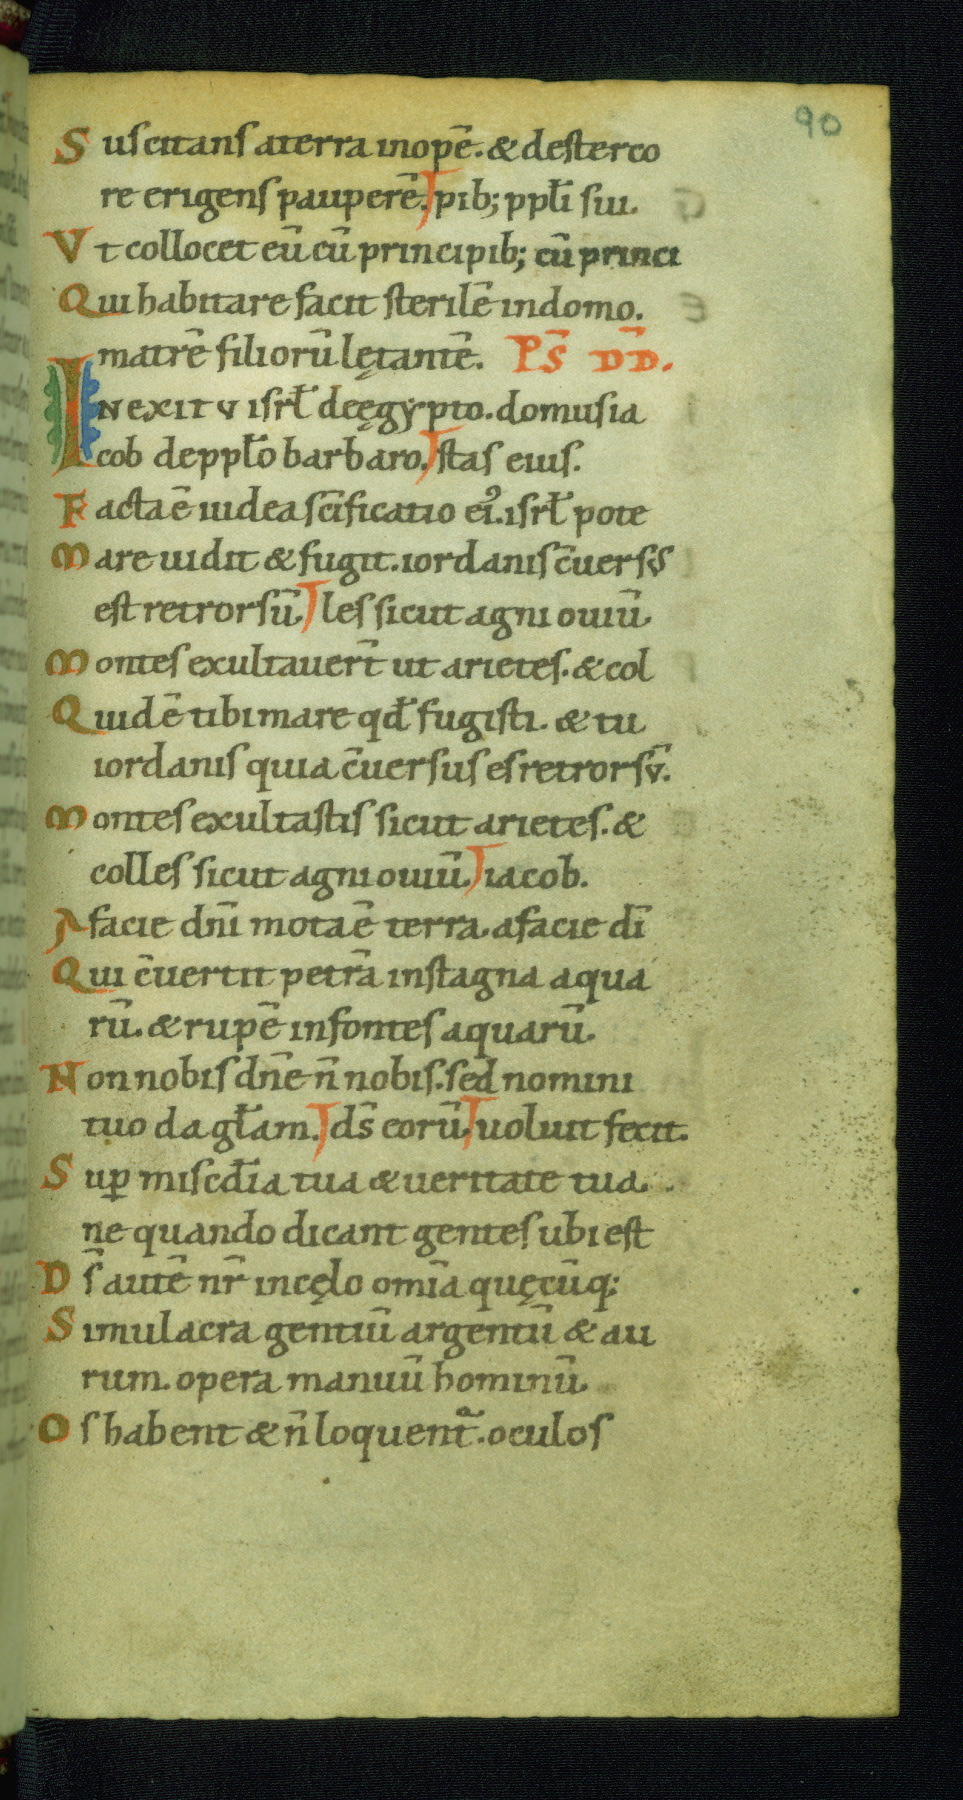 90
Suscitans a terra inopē. & de sterco
re erigens pauperē. pib; ppłi sui.
Vt collocet eū cū principib; cū princi
Qui habitare facit sterilē in domo.
matrē filiorū lętantē. Ps̄ DD̄.
IN EXITV isrł de ęgẏpto. domus ia
cob de ppło barbaro. stas eius.
Facta ē iudea scīficatio ei᾿. isrł pote
Mare uidit & fugit. iordanis c̄uersus
est retrorsū. les sicut agni ouiū.
Montes exultauer̄t ut arietes. & col
Quid ē tibi mare qđ fugisti. & tu
iordanis quia c̄uersus es retrorsv̄.
Montes exultastis sicut arietes. &
colles sicut agni ouiū. iacob.
A facie dn̄i mota ē terra. a facie dī
Qui c̄uertit petrā in stagna aqua
rū. & rupē in fontes aquarū.
Non nobis dn̄e n̄ nobis. sed nomini
tuo da głam. ds̄ eorū. uoluit fecit.
Suꝑ misc̄đia tua & ueritate tua.
ne quando dicant gentes ubi est
Ds̄ autē nr̄ in cęlo omīa quęcūq;
Simulacra gentiū argentū & au
rum. opera manuū hominū.
Os habent & n̄ loquent᷑. oculos